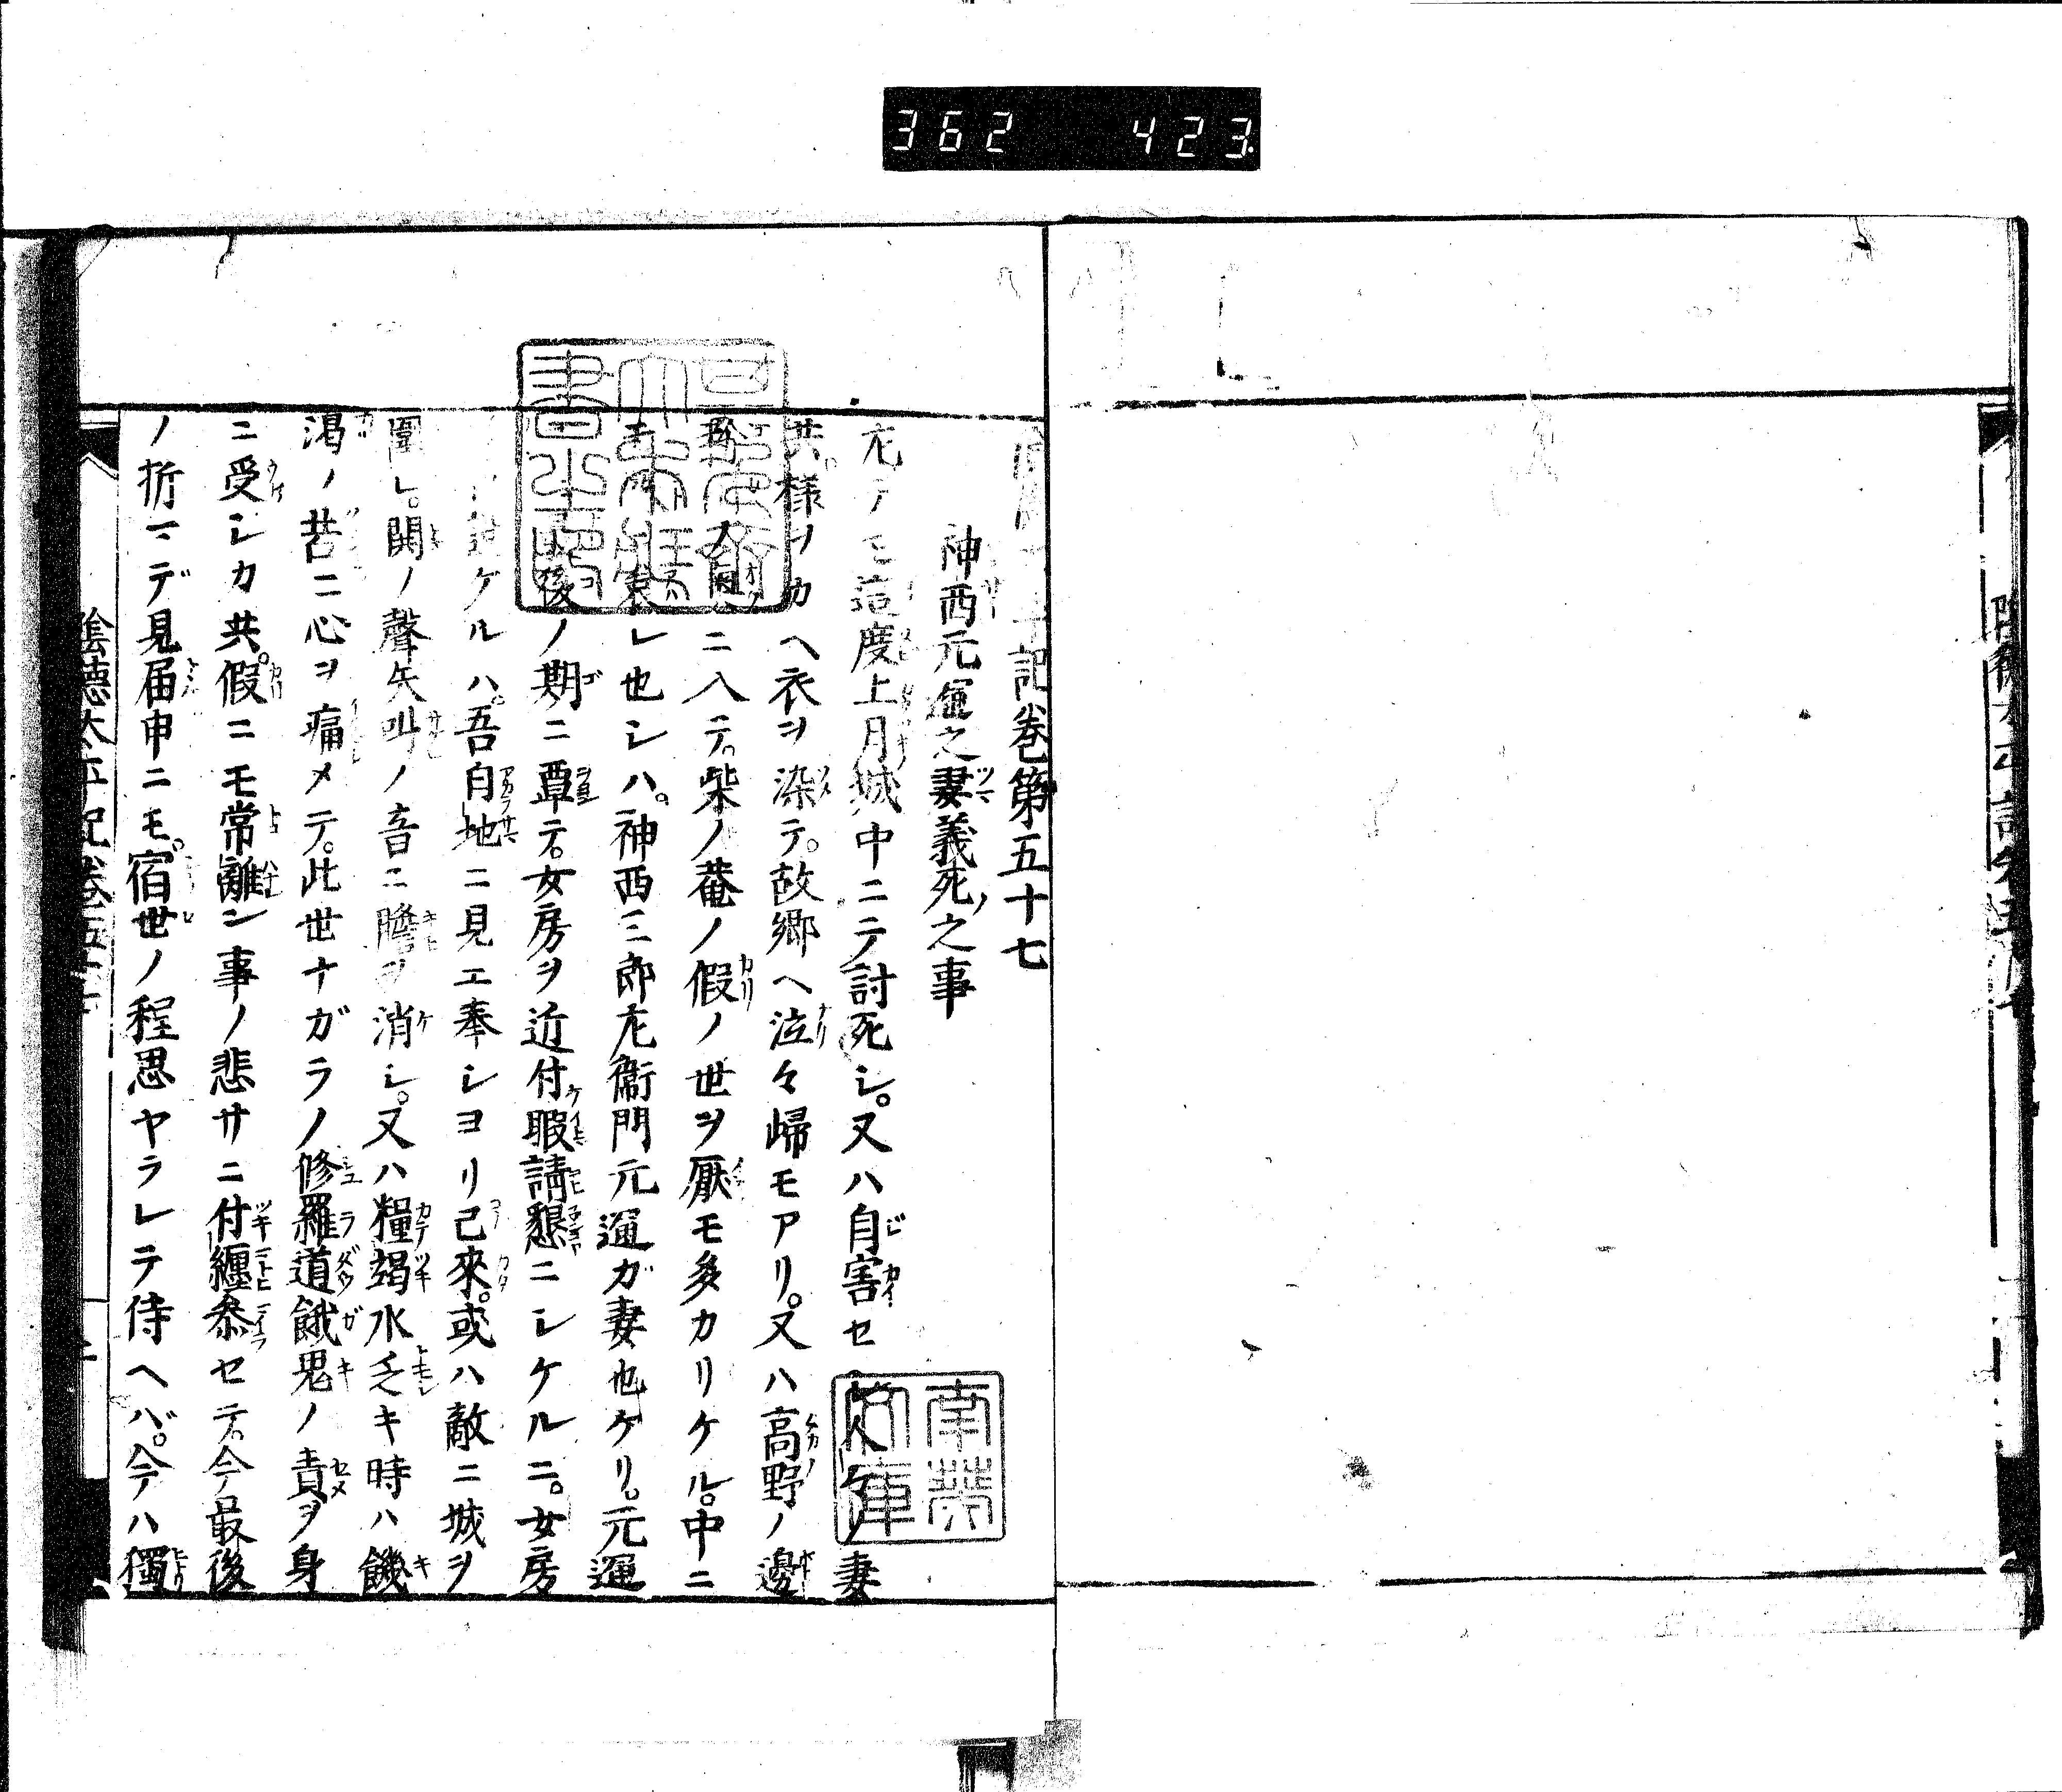 362 423
記巻第五十七
神西元通之妻義死之事
尤テモ這度上月城中ニテ討死シ。又ハ自害セシ人々ノ妻
共。様ヲカヘ衣ヲ染テ。故郷ヘ泣々歸モアリ。又ハ高野ノ邊
ニ入テ。柴ノ菴ノ假ノ世ヲ厭モ多カリケル。中ニ
レ也シハ。神西三郎左衛門元通ガ妻也ケリ。元通
後ノ期ニ覃テ。女房ヲ近付暇請懇ニシケルニ。女房
ケルハ。吾自地ニ見エ奉シヨリ已來。或ハ敵ニ城ヲ
圍レ。鬨ノ聲矢叫ノ音ニ膽ヲ消シ。又ハ糧竭水乏キ時ハ饑
渇ノ苦ニ心ヲ痛メテ。此世ナガラノ修羅道餓鬼ノ責ヲ身
ニ受シカ共。假ニモ常離シ事ノ悲サニ付纏參セテ。今最後
ノ折マデ見届申ニモ。宿世ノ程思ヤラレテ侍ヘバ。今ハ獨
陰徳太平記巻五十七